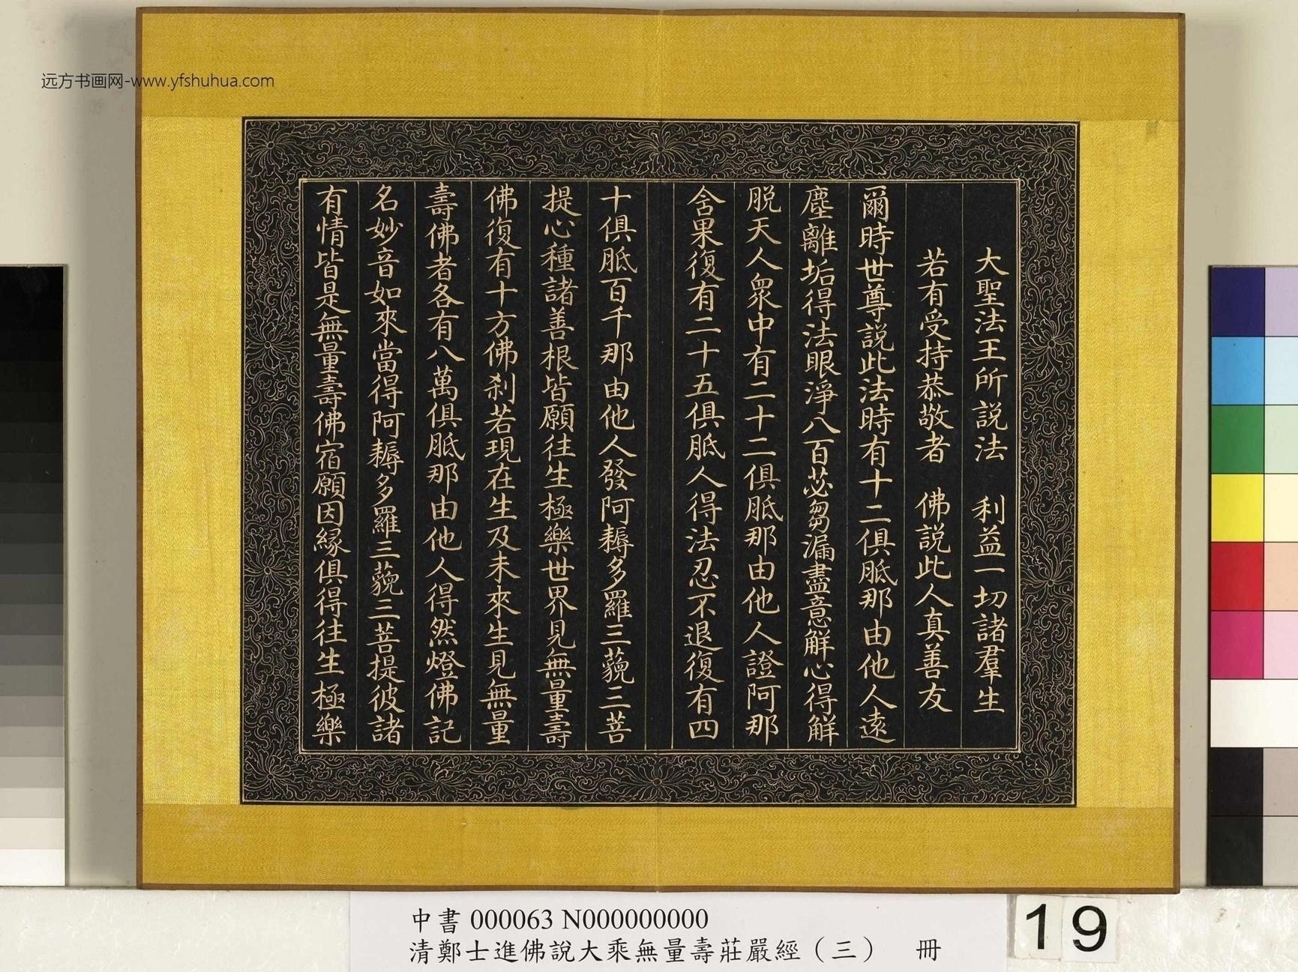 远方书画网-www.yfshuhua.com
大聖法王所説法　利益一切諸羣生
若有受持恭敬者　佛説此人真善友
爾時世尊説此法時有十二俱胝那由他人遠
塵離垢得法眼淨八百苾芻漏盡意解心得解
脱天人衆中有二十二俱胝那由他人證阿那
含果復有二十五俱胝人得法忍不退復有四
十俱胝百千那由他人發阿耨多羅三藐三菩
提心種諸善根皆願往生極樂世界見無量壽
佛復有十方佛刹若現在生及未來生見無量
壽佛者各有八萬俱胝那由他人得然燈佛記
名妙音如來當得阿耨多羅三藐三菩提彼諸
有情皆是無量壽佛宿願因緣俱得往生極樂
中書 000063 N000000000
清鄭士進佛說大乘無量壽莊嚴經（三）　冊
19